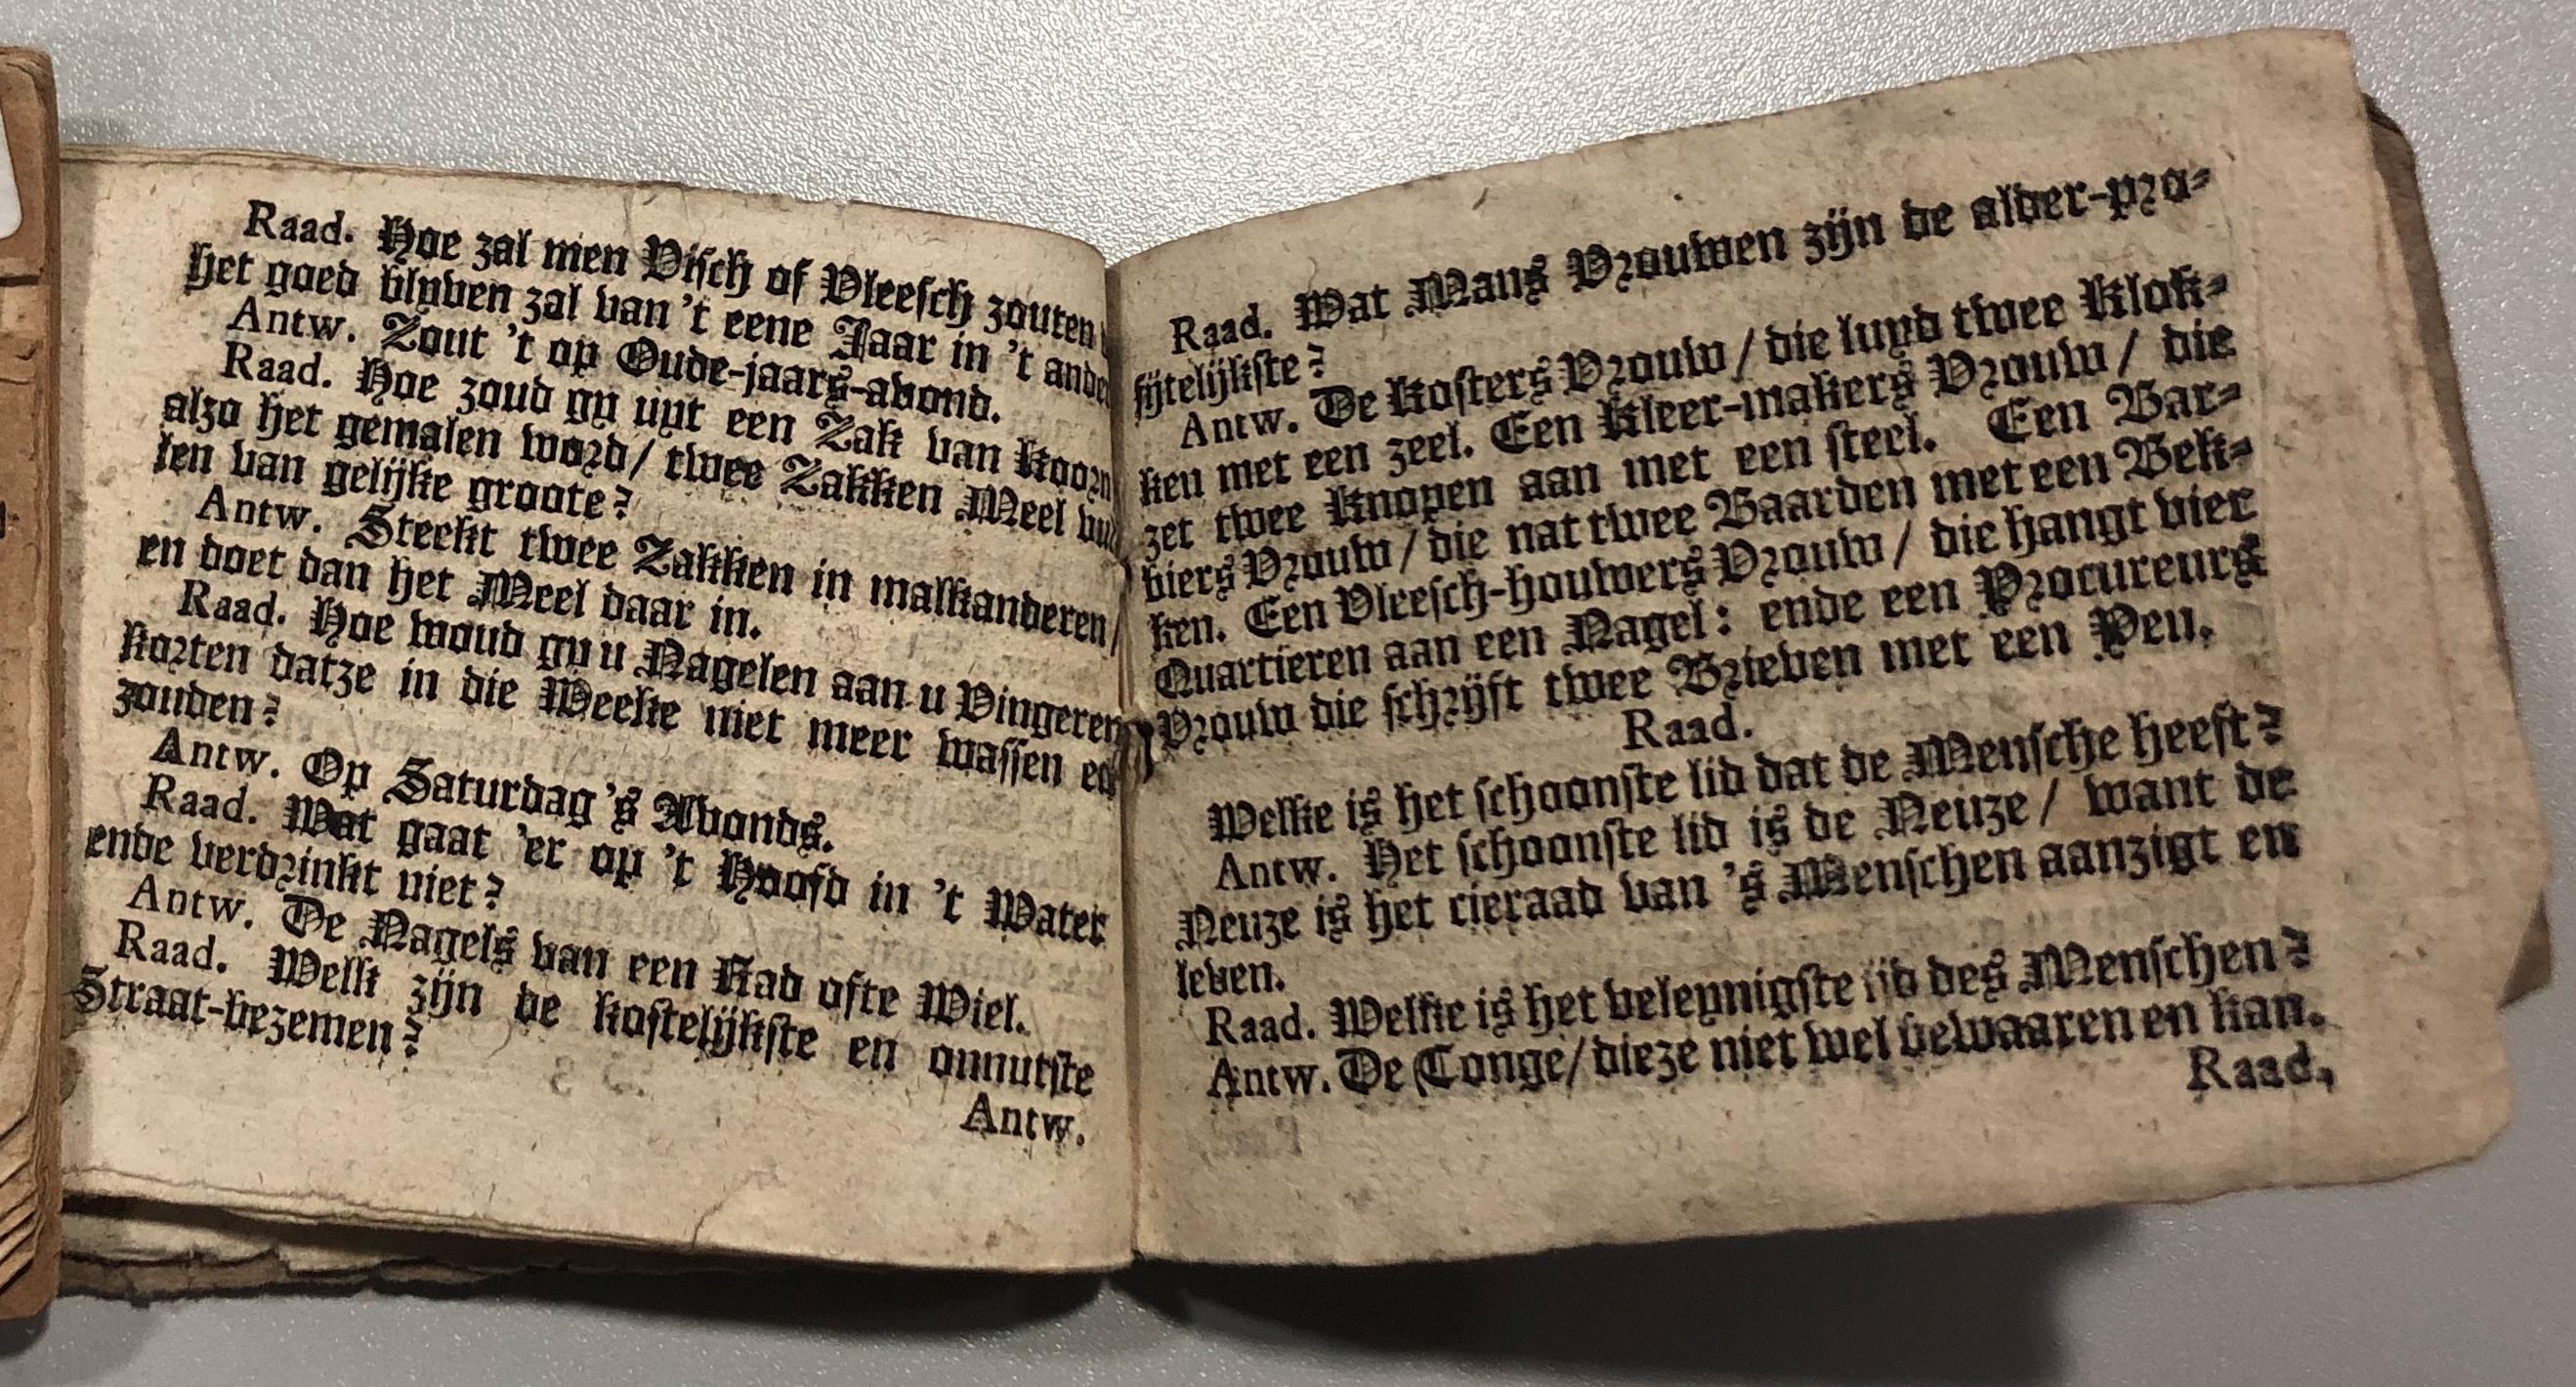 Raad. Hoe zal men Visch of Vleesch zouten
het goed blyven zal van 't eene Jaar in 't ander
Antw. Zout 't op Oude-jaars-avond.
Raad. Hoe zoud gy uyt een Zak van Koorn
alzo het gemalen word / twee Zakken Meel vul
len van gelijke groote?
Antw. Steekt twee Zakken in malkanderen /
en doet dan het Meel daar in.
Raad. Hoe woud gy u Nagelen aan u Vingeren
korten datze in die Weeke niet meer wassen en
zouden?
Antw. Op Saturdag 's Avonds.
Raad. Wat gaat 'er op 't Hoofd in 't Water
ende verdrinkt niet?
Antw. De Nagels van een Rad ofte Wiel.
Raad. Welk zijn de kostelijkste en onnutste
Straat-bezemen?
Antw.
Raad. Wat Mans Vrouwen zijn de alder-pro-
fijtelijkste?
Antw. De Kosters Vrouw / die luyd twee Klok-
ken met een zeel. Een Kleer-makers Vrouw / die
zet twee Knopen aan met een steel. Een Bar-
biers Vrouw / die nat twee Baarden met een Bek-
ken. Een Vleesch-houwers Vrouw / die hangt vier
Quartieren aan een Nagel: ende een Procureurs
Vrouw die schrijft twee Brieven met een Pen.
Raad.
Welke is het schoonste lid dat de Mensche heeft?
Antw. Het schoonste lid is de Neuze / want de
Neuze is het cieraad van 's Menschen aanzigt en
leven.
Raad. Welke is het veleynigste lid des Menschen?
Antw. De Tonge / dieze niet wel bewaaren en kan.
Raad,